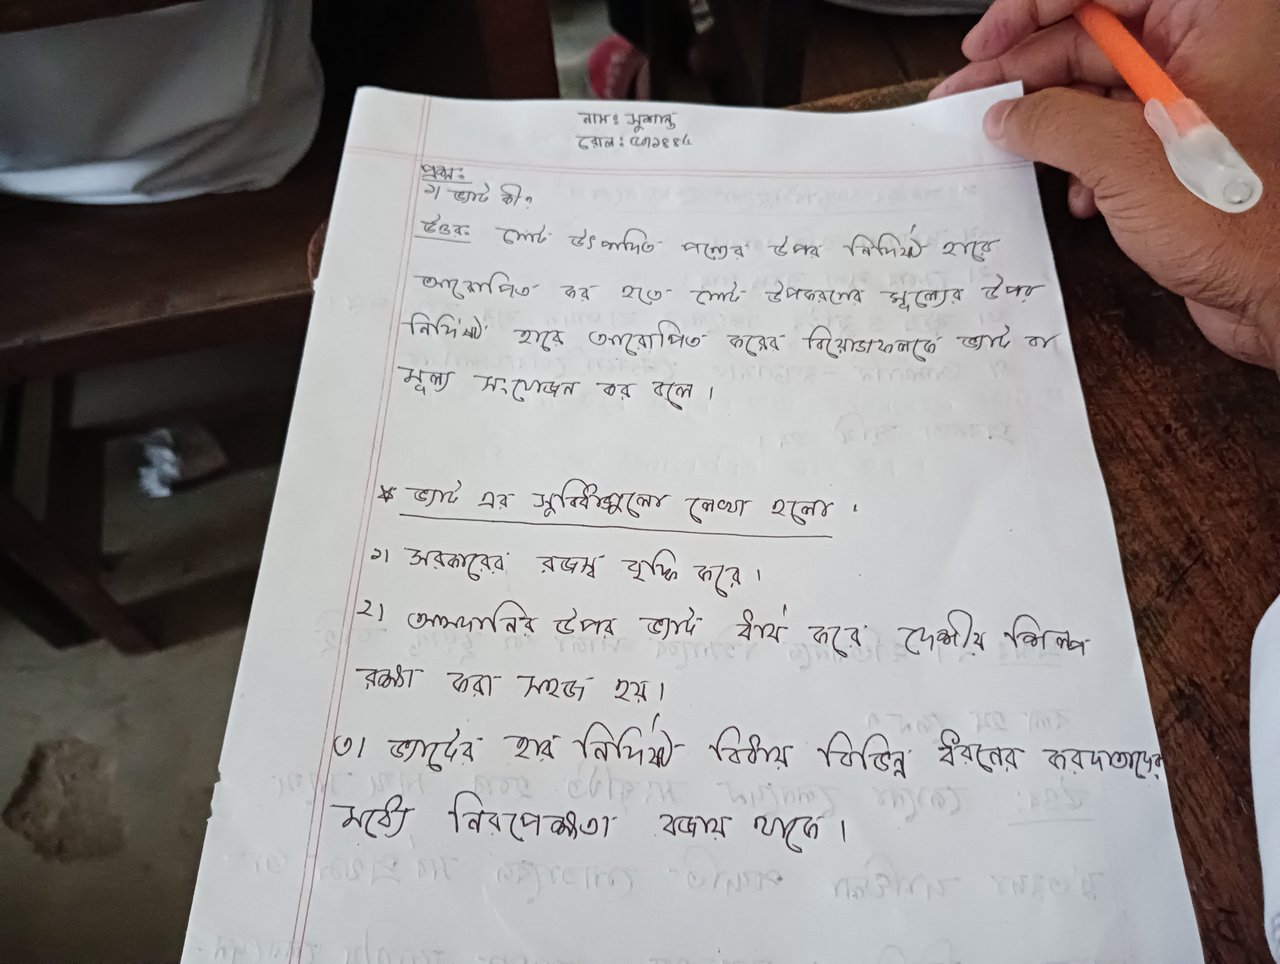 নামঃ সুশান্ত
রোল:
প্রশ্ন:
১। ভ্যাট কী?
উত্তর: মোট উৎপাদিত পণ্যের উপর নির্দিষ্ট হারে
আরোপিত কর হতে মোট উপকরণের মূল্যের উপর
নির্দিষ্ট হারে আরোপিত করের বিয়োজফলকে ভ্যাট বা
মূল্য সংযোজন কর বলে।
* ভ্যাট এর সুবিধাগুলো লেখা হলো।
১। সরকারের রাজস্ব বৃদ্ধি করে।
২। আমদানির উপর ভ্যাট ধার্য করে দেশীয় শিল্প
রক্ষা করা সহজ হয়।
৩। ভ্যাটের হার নির্দিষ্ট বিধায় বিভিন্ন ধরনের করদাতাদের
মধ্যে নিরপেক্ষতা বজায় থাকে।